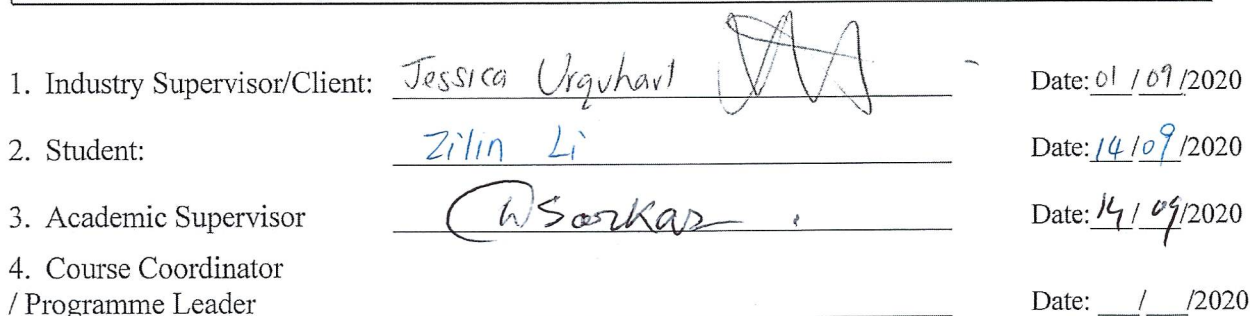 1. Industry Supervisor/Client: Jessica Urquhart Date: 01/09/2020
2. Student: Zilin Li Date: 14/09/2020
3. Academic Supervisor Sarkar Date: 14/09/2020
4. Course Coordinator
/ Programme Leader Date: __/__/2020